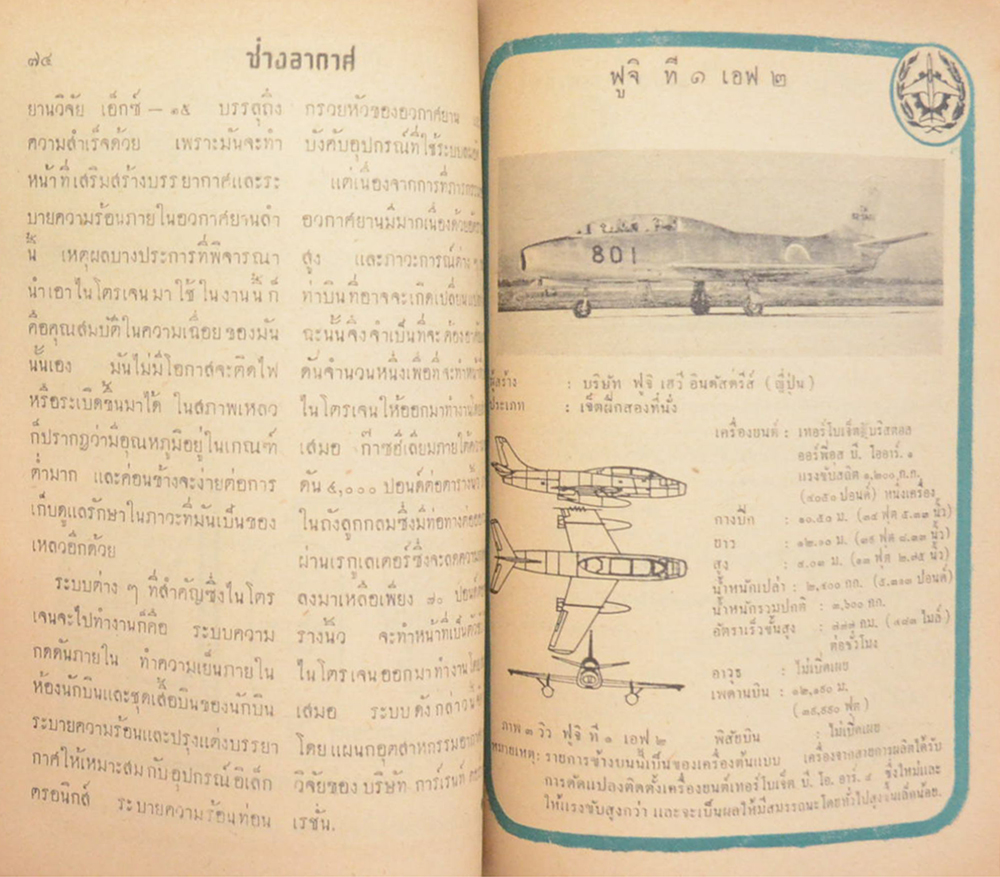 ๗๔
ช่างอากาศ
ยานวิจัย เอ็กซ์ — ๑๕ บรรลุถึง
ความสำเร็จด้วย เพราะมันจะทำ
หน้าที่เสริมสร้างบรรยากาศและระ
บายความร้อนภายในอวกาศยานลำ
นี้ เหตุผลบางประการที่พิจารณา
นำเอาไนโตรเจนมาใช้ในงานนี้ก็
คือคุณสมบัติในความเฉื่อยของมัน
นั้นเอง มันไม่มีโอกาสจะติดไฟ
หรือระเบิดขึ้นมาได้ ในสภาพเหลว
ก็ปรากฏว่ามีอุณหภูมิอยู่ในเกณฑ์
ต่ำมาก และค่อนข้างจะง่ายต่อการ
เก็บดูแลรักษาในภาวะที่มันเป็นของ
เหลวอีกด้วย
ระบบต่าง ๆ ที่สำคัญซึ่งไนโตร
เจนจะไปทำงานก็คือ ระบบความ
กดดันภายใน ทำความเย็นภายใน
ห้องนักบินและชุดเสื้อบินของนักบิน
ระบายความร้อนและปรุงแต่งบรรยา
กาศให้เหมาะสมกับอุปกรณ์อิเล็ก
ตรอนิกส์ ระบายความร้อนท่อน
กรวยหัวของอวกาศยาน
บังคับอุปกรณ์ที่ใช้ระบบ
แต่เนื่องจากการที่
อวกาศยานมีมากเนื่องด้วย
สูง และภาวะการณ์ต่าง ๆ
ท่าบินที่อาจจะเกิดเปลี่ยน
ฉะนั้นจึงจำเป็นที่จะต้อง
ดันจำนวนหนึ่งเพื่อที่จะทำ
ไนโตรเจนให้ออกมาทำงาน
เสมอ ก๊าซฮีเลียมภายใต้ความ
ดัน ๔,๐๐๐ ปอนด์ต่อตารางนิ้ว
ในถังลูกกลมซึ่งมีท่อทางต่อ
ผ่านเรกูเลเตอร์ซึ่งจะลดความ
ลงมาเหลือเพียง ๗๐ ปอนด์
รางนิ้ว จะทำหน้าที่เป็นตัว
ไนโตรเจนออกมาทำงาน
เสมอ ระบบดังกล่าวนี้
โดยแผนกอุตสาหกรรมอากาศ
วิจัยของบริษัท การ์เรทท์
เรชั่น.
ฟูจิ ที ๑ เอฟ ๒
801
ผู้สร้าง : บริษัท ฟูจิ เฮวี่ อินดัสตรีส์ (ญี่ปุ่น)
ประเภท : เจ็ตฝึกสองที่นั่ง
เครื่องยนต์ : เทอร์โบเจ็ตบริสตอล
ออร์ฟิอัส บี. โออาร์. ๑
แรงขับสถิต ๑,๒๐๐ ก.ก.
(๔๐๕๐ ปอนด์) หนึ่งเครื่อง
กางปีก : ๑๐.๕๐ ม. (๓๔ ฟุต ๕.๓๓ นิ้ว)
ยาว : ๑๒.๑๐ ม. (๓๙ ฟุต ๘.๓๓ นิ้ว)
สูง : ๔.๐๓ ม. (๑๓ ฟุต ๒.๗๕ นิ้ว)
น้ำหนักเปล่า : ๒,๔๐๐ กก. (๕.๓๑๓ ปอนด์)
น้ำหนักรวมปกติ : ๓,๖๐๐ กก.
อัตราเร็วขั้นสูง : กม. ( ไมล์)
ต่อชั่วโมง
อาวุธ : ไม่เปิดเผย
เพดานบิน : ๑๒,๑๙๐ ม.
(๓๙,๙๙๐ ฟุต)
ภาพ ๓ วิว ฟูจิ ที ๑ เอฟ ๒ พิสัยบิน : ไม่เปิดเผย
หมายเหตุ: รายการข้างบนนี้เป็นของเครื่องต้นแบบ เครื่องจากสายการผลิตได้รับ
การดัดแปลงติดตั้งเครื่องยนต์เทอร์โบเจ็ต บี. โอ. อาร์. ๔ ซึ่งใหม่และ
ให้แรงขับสูงกว่า และจะเป็นผลให้มีสมรรถนะโดยทั่วไปสูงขึ้นเล็กน้อย.